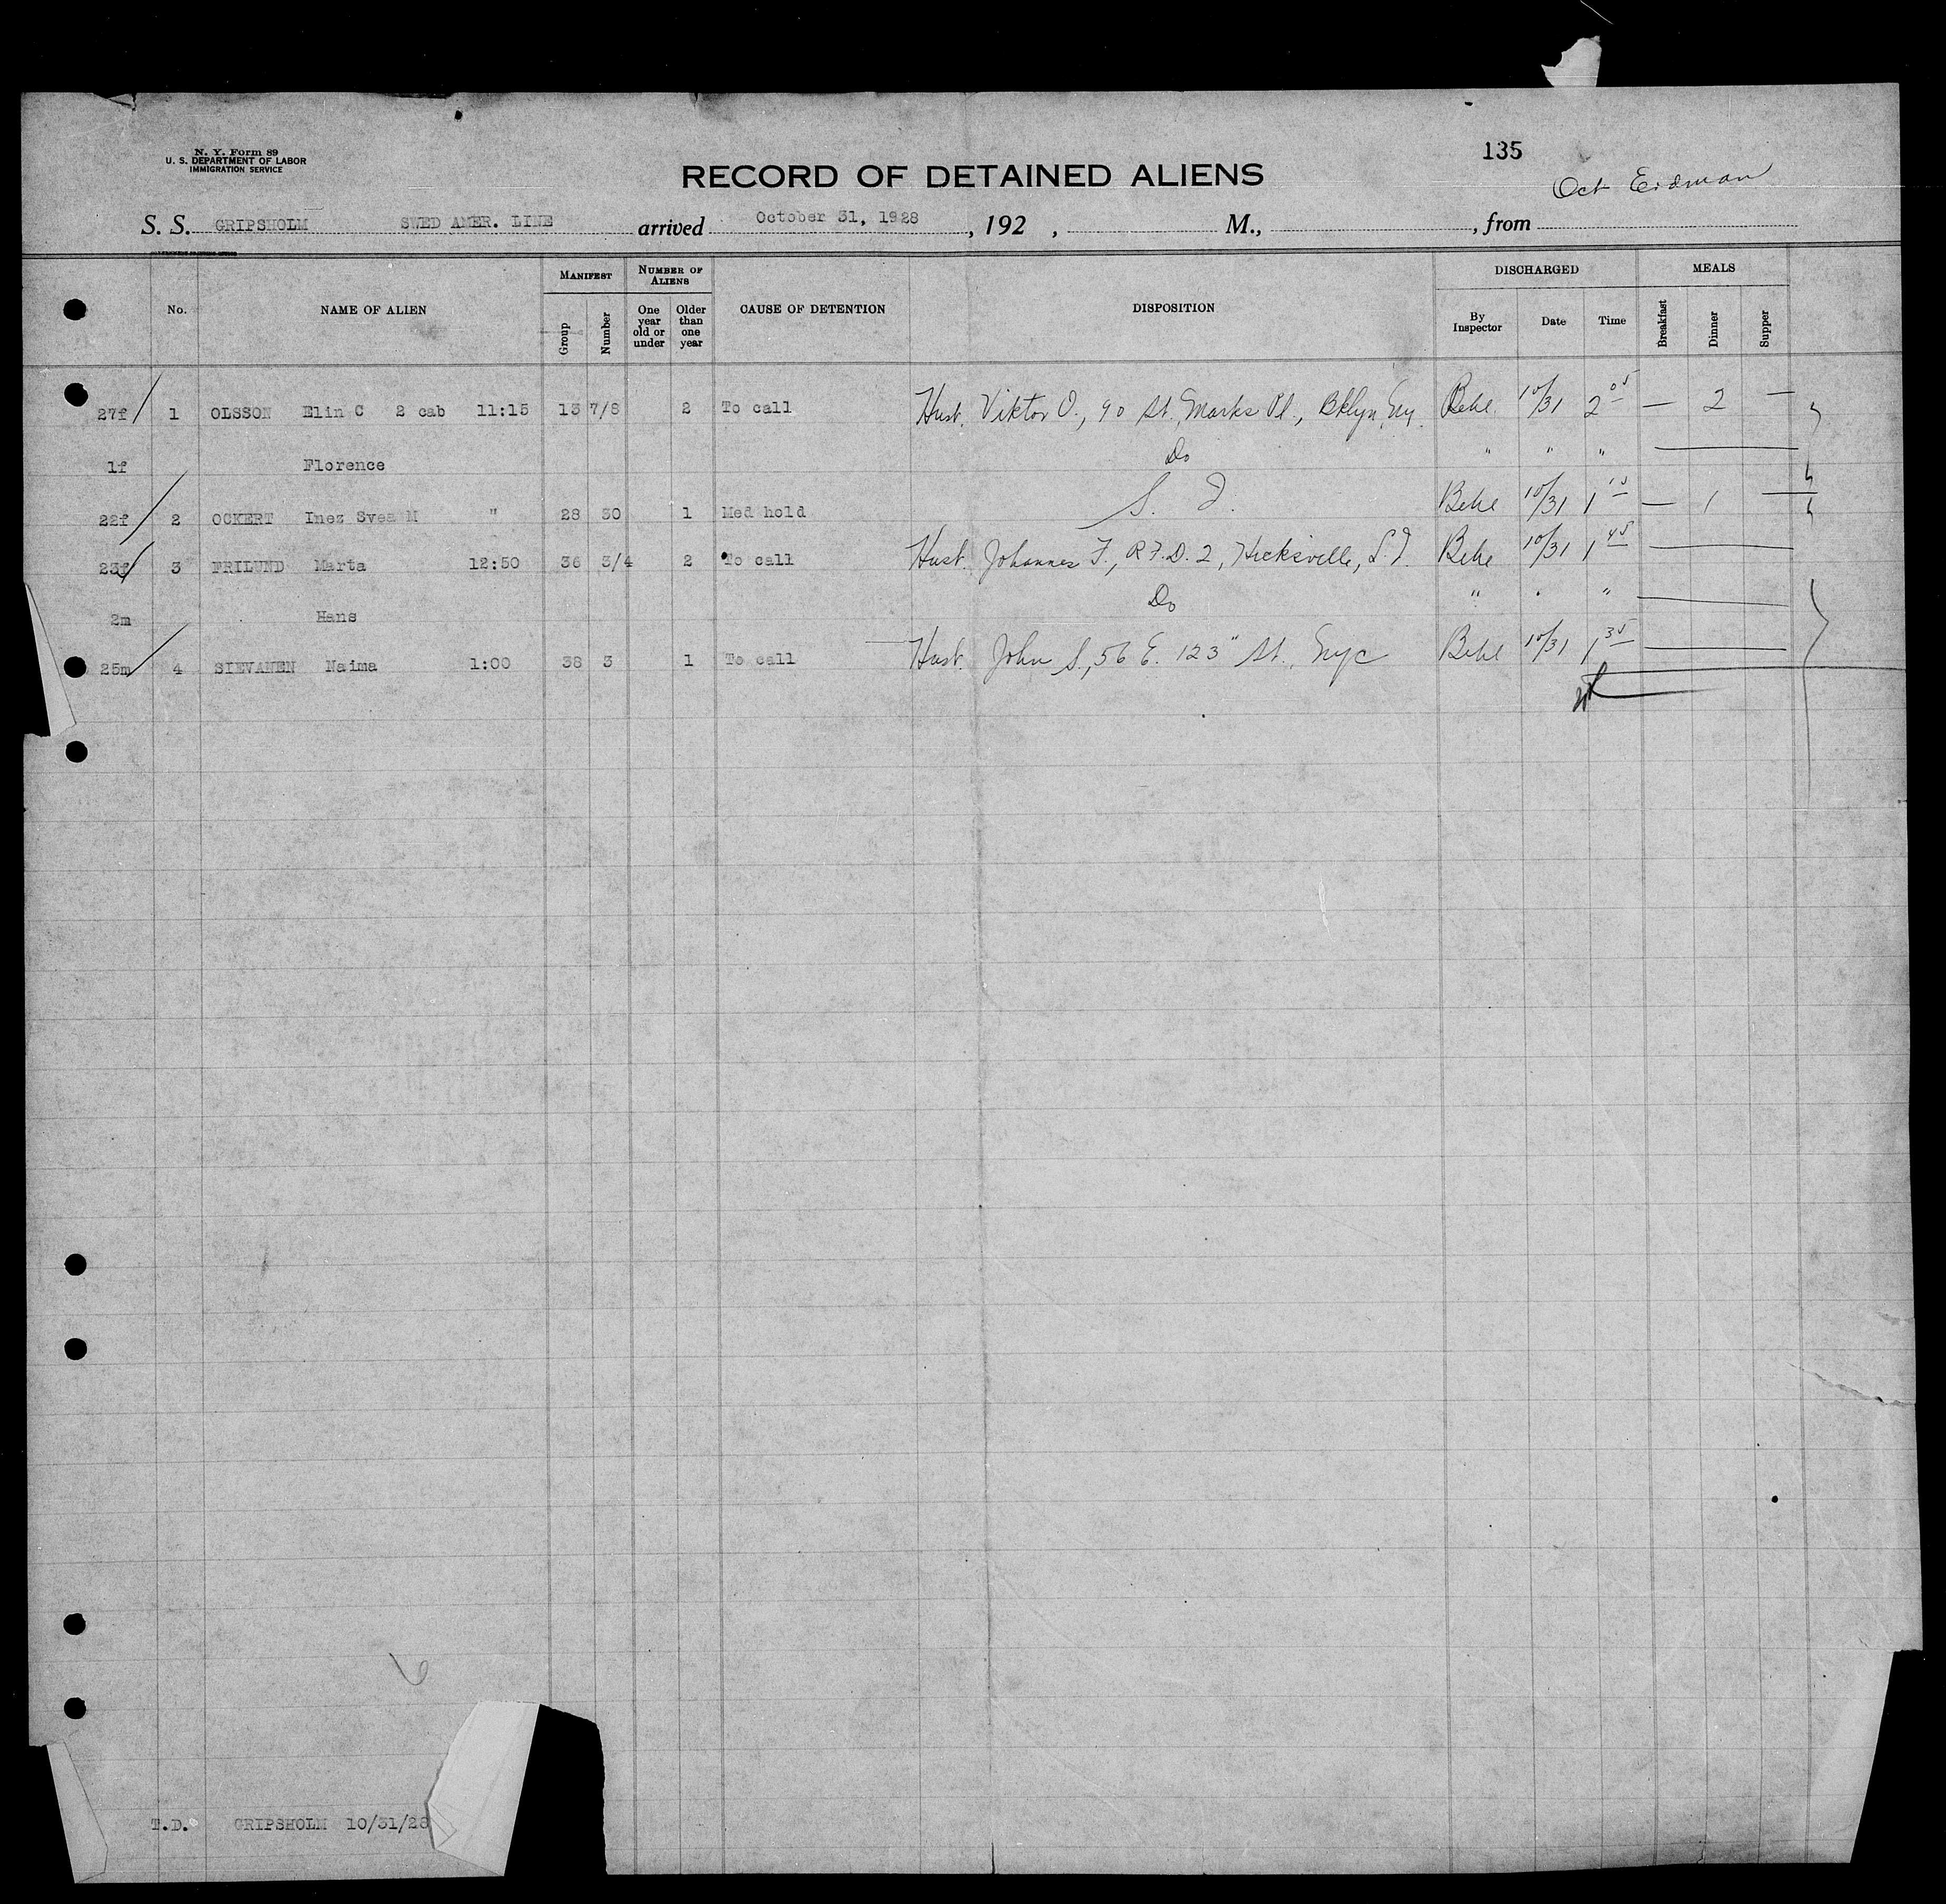 N. Y. Form 89
U. S. DEPARTMENT OF LABOR
IMMIGRATION SERVICE
135
RECORD OF DETAINED ALIENS
S. S. GRIPSHOLM SWED AMER. LINE arrived October 31, 1928, 192 , M., , from
GOVERNMENT PRINTING OFFICE
No. NAME OF ALIEN MANIFEST Group Number NUMBER OF ALIENS One year old or under Older than one year CAUSE OF DETENTION DISPOSITION DISCHARGED By Inspector Date Time MEALS Breakfast Dinner Supper
27f 1 OLSSON Elin C 2 cab 11:15 13 7/8 2 To call Husb. Viktor O., 90 St. Marks Pl., Bklyn, Ny. 10/31 2 05 — 2 —
1f Florence Do " " "
22f 2 OCKERT Inez Svea M " 28 30 1 Med hold 10/31 1 — 1 —
23f 3 FRILUND Marta 12:50 36 3/4 2 To call Husb. Johannes F., R.F.D. 2, Hicksville, L.I. 10/31 1 45
2m Hans Do " " "
25m 4 SIEVANEN Naima 1:00 38 3 1 To call Husb. John S., 56 E. 123" St., Nyc 10/31 1 35
T.D. GRIPSHOLM 10/31/28